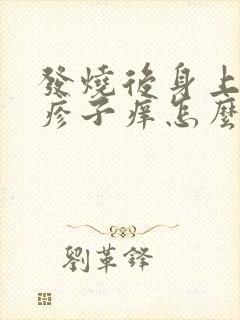 發燒後身上
疹子癢怎麼
劉革鋒